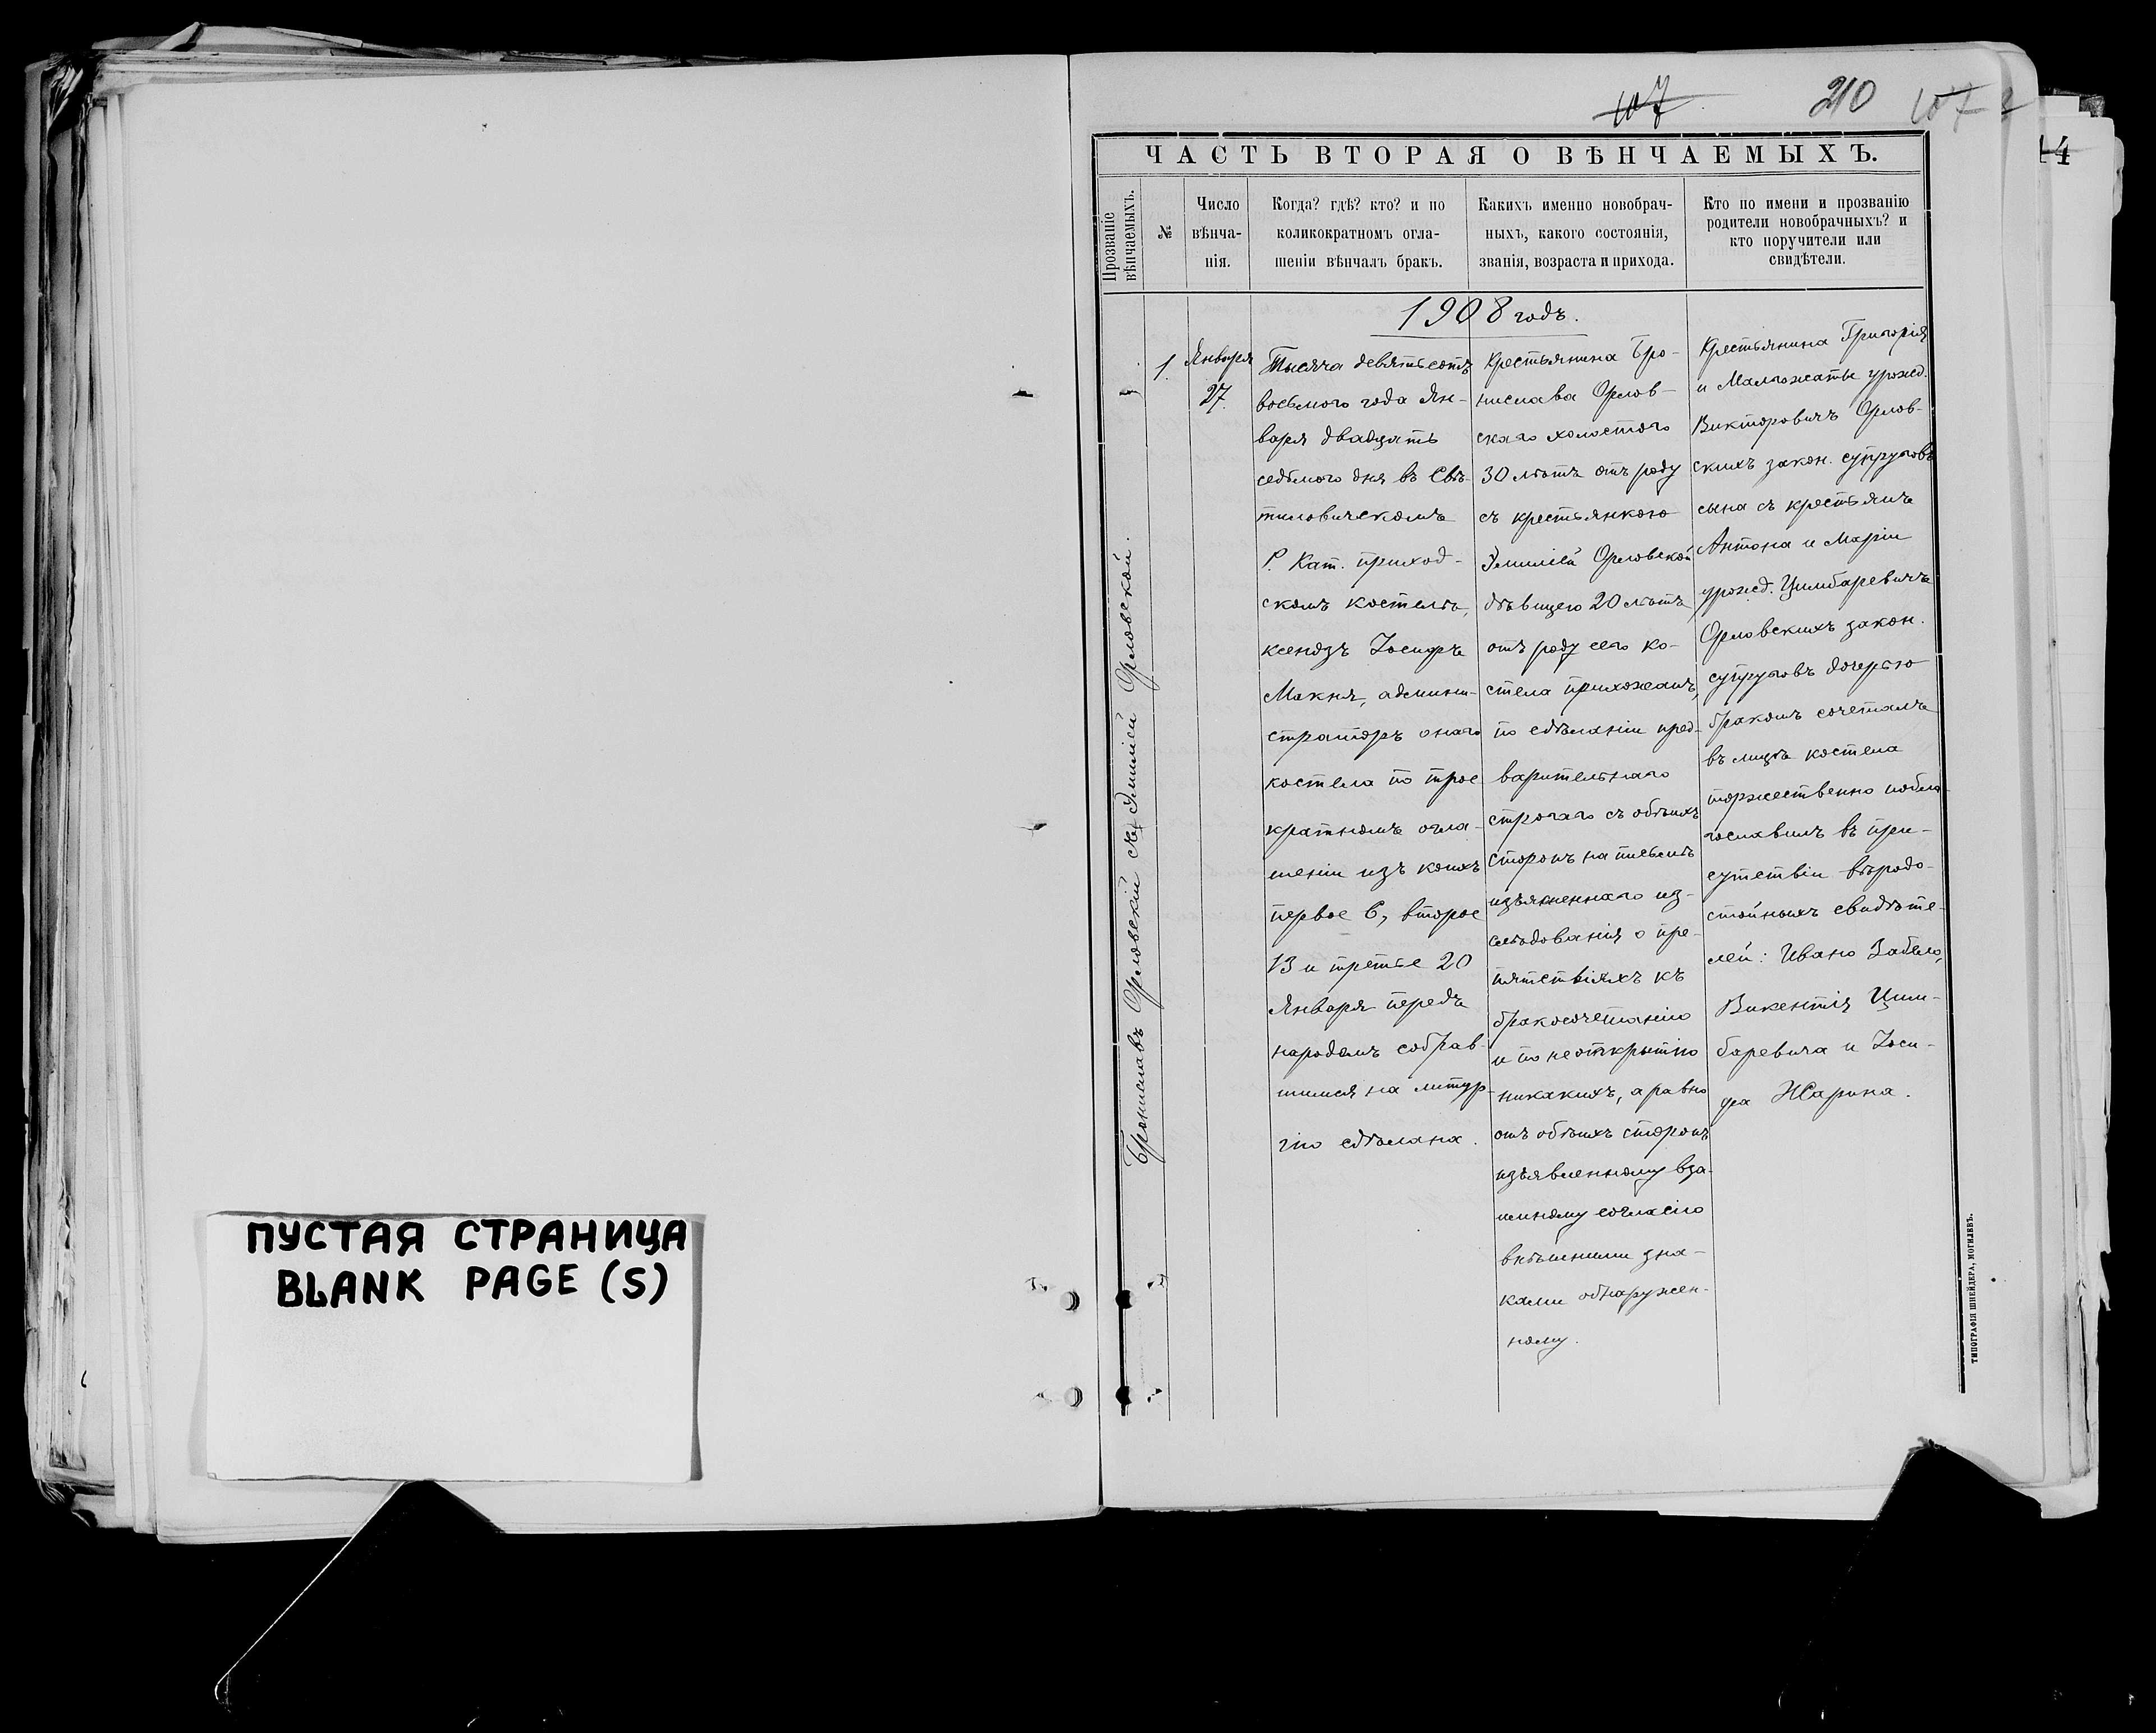 ПУСТАЯ СТРАНИЦА
BLANK PAGE (S)
107
210
107
14
ЧАСТЬ ВТОРАЯ О ВѢНЧАЕМЫХЪ.
Прозваніе
вѣнчаемыхъ.
№
Число
вѣнча-
нія.
Когда? гдѣ? кто? и по
коликократномъ огла-
шеніи вѣнчалъ бракъ.
Какихъ именно новобрач-
ныхъ, какого состоянія,
званія, возраста и прихода.
Кто по имени и прозванію
родители новобрачныхъ? и
кто поручители или
свидѣтели.
1908 годъ.
Брониславъ Орловскій съ Эмиліей Орловской.
1.
Января
27.
Тысяча девятьсотъ
восьмого года Ян-
варя двадцать
седьмого дня въ Свѣ-
тиловическомъ
Р. Кат. приход-
скомъ костелѣ,
ксендзъ Іосифъ
Макня, админи-
страторъ онаго
костела по трое
кратномъ огла-
шеніи изъ коихъ
первое 6, второе
13 и третье 20
Января передъ
народомъ собрав-
шимся на литур-
гію сдѣлана.
Крестьянина Бро-
нислава Орлов-
скаго холостого
30 лѣтъ отъ роду
съ крестьянкою
Эмиліей Орловской
дѣвицею 20 лѣтъ
отъ роду сего ко-
стела прихожанъ,
по сдѣланіи пред-
варительнаго
строгаго съ обѣихъ
сторонъ на письмѣ
изъясненнаго из-
слѣдованія о пре-
пятствіяхъ къ
бракосочетанію
и по неоткрытію
никакихъ, а равно
отъ обѣихъ сторонъ
изъявленному вза-
имному согласію
внѣшними зна-
ками обнаружен-
ному.
Крестьянина Григорія
и Малгожаты урожд.
Викторовичъ Орлов-
скихъ закон. супруговъ
сына съ крестьянъ
Антона и Маріи
урожд. Цимбаревичъ
Орловскихъ закон.
супруговъ дочерью
бракомъ сочеталъ
въ лицѣ костела
торжественно побла-
гославилъ въ при-
сутствіи вѣродо-
стойныхъ свидѣте-
лей: Ивана Забело,
Викентія Цим-
баревича и Іоси-
фа Жарина.
ТИПОГРАФІЯ ШНЕЙДЕРА, МОГИЛЕВЪ.